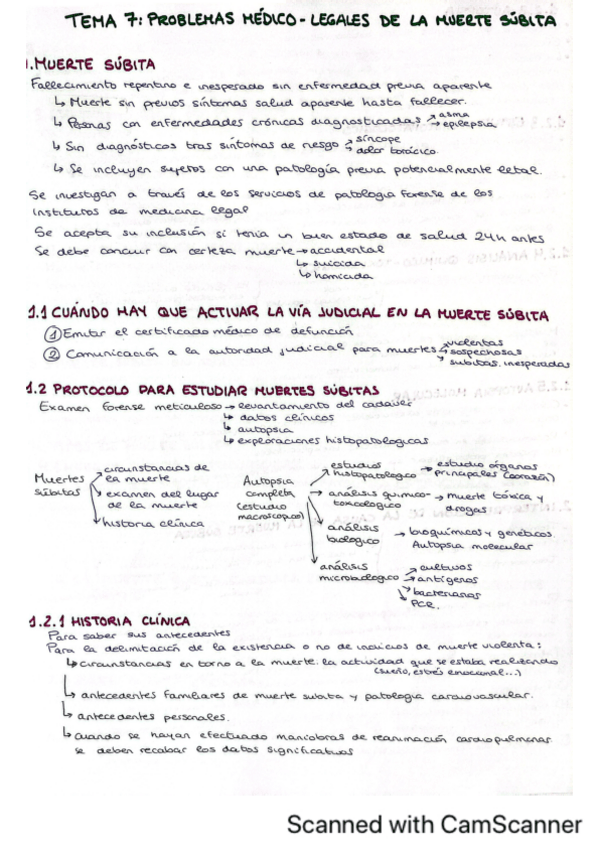 TEMA 7: PROBLEMAS MÉDICO-LEGALES DE LA MUERTE SÚBITA
1. MUERTE SÚBITA
Fallecimiento repentino e inesperado sin enfermedad previa aparente
↳ Muerte sin previos síntomas salud aparente hasta fallecer.
↳ Personas con enfermedades crónicas diagnosticadas → asma
→ epilepsia
↳ Sin diagnósticos tras síntomas de riesgo → síncope
→ dolor torácico.
↳ Se incluyen sujetos con una patología previa potencialmente letal.
Se investigan a través de los servicios de patología forense de los
Institutos de medicina legal
Se acepta su inclusión si tenía un buen estado de salud 24h antes
Se debe concluir con certeza muerte → accidental
↳ suicida
↳ homicida
1.1 CUÁNDO HAY QUE ACTIVAR LA VÍA JUDICIAL EN LA MUERTE SÚBITA
① Emitir el certificado médico de defunción
② Comunicación a la autoridad judicial para muertes → violentas
→ sospechosas
→ súbitas. inesperadas
1.2 PROTOCOLO PARA ESTUDIAR MUERTES SÚBITAS
Examen forense meticuloso → levantamiento del cadáver
↳ datos clínicos
↳ autopsia
↳ exploraciones histopatologicas
Muertes súbitas → circunstancias de la muerte
→ examen del lugar de la muerte
→ historia clínica
Autopsia completa (estudio macroscopico)
→ estudios histopatologico → estudio órganos principales (corazón)
→ análisis quimico-toxicologico → muerte tóxica y drogas
→ análisis biologico → bioquímicos y genéticos. Autopsia molecular
→ análisis microbiologico → cultivos
→ antígenos
→ bacterianas
→ PCR.
1.2.1 HISTORIA CLÍNICA
Para saber sus antecedentes
Para la delimitación de la existencia o no de indicios de muerte violenta:
↳ circunstancias en torno a la muerte. la actividad que se estaba realizando
(sueño, estrés emocional...)
↳ antecedentes familiares de muerte subita y patologia cardiovascular.
↳ antecedentes personales.
↳ cuando se hayan efectuado maniobras de reanimación cardiopulmonar
se deben recabar los datos significativos
Scanned with CamScanner